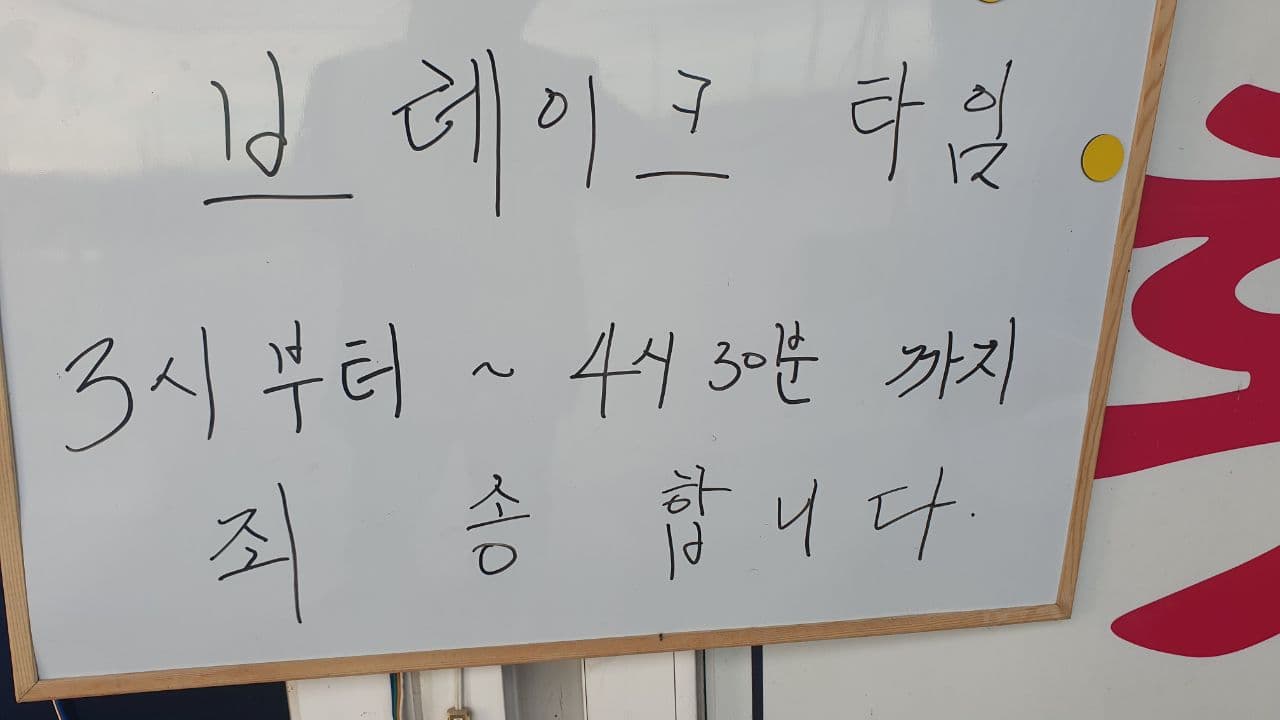 브레이크 타임
3시부터 ~ 4시30분 까지
죄송합니다.